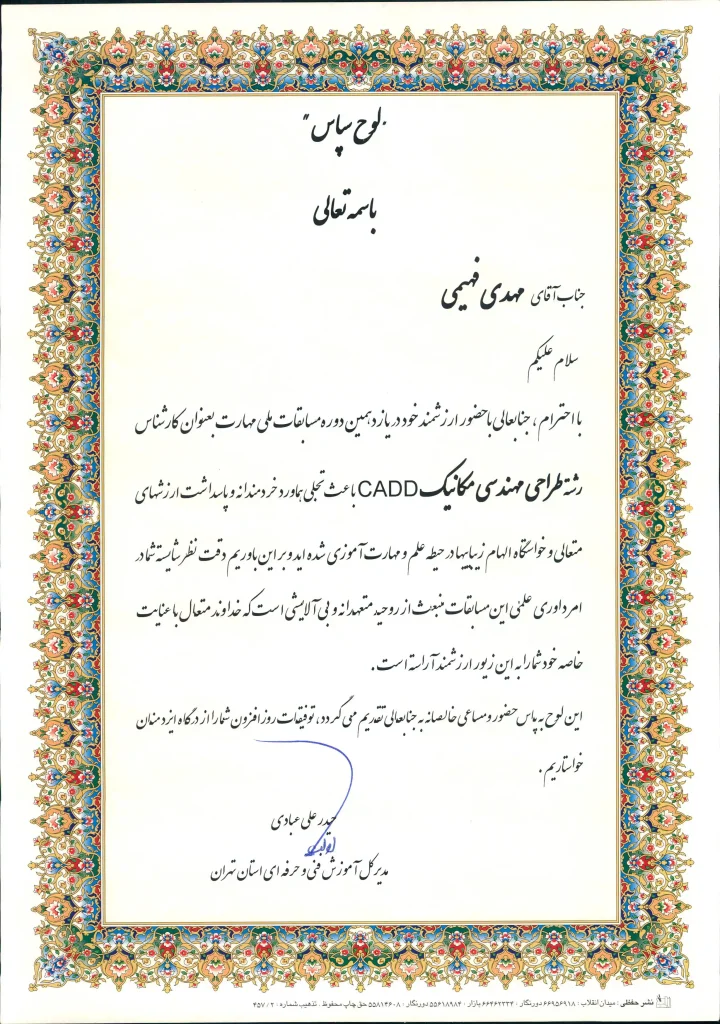 "لوح سپاس"
باسمه تعالی
جناب آقای مهدی فهیمی
سلام علیکم
با احترام، جنابعالی با حضور ارزشمند خود در یازدهمین دوره مسابقات ملی مهارت بعنوان کارشناس
رشته طراحی مهندسی مکانیک CADD باعث تجلی هماورد خردمندانه و پاسداشت ارزشهای
متعالی و خواستگاه الهام زیباییها در حیطه علم و مهارت آموزی شده اید و بر این باوریم دقت نظر شایسته شما در
امر داوری علمی این مسابقات منبعث از روحیه متعهدانه و بی آلایشی است که خداوند متعال با عنایت
خاصه خود شما را به این زیور ارزشمند آراسته است.
این لوح به پاس حضور و مساعی خالصانه به جنابعالی تقدیم می گردد، توفیقات روز افزون شما را از درگاه ایزد منان
خواستاریم.
حیدر علی عبادی
مدیر کل آموزش فنی و حرفه ای استان تهران
نشر حفظی: میدان انقلاب: ۶۶۹۵۶۹۱۸ دورنگار: ۶۶۴۶۲۳۳۴ بازار: ۵۵۶۱۸۹۸۴ دورنگار: ۵۵۸۱۴۶۰۸ حق چاپ محفوظ. تذهیب شماره: ۴۵۷/۲